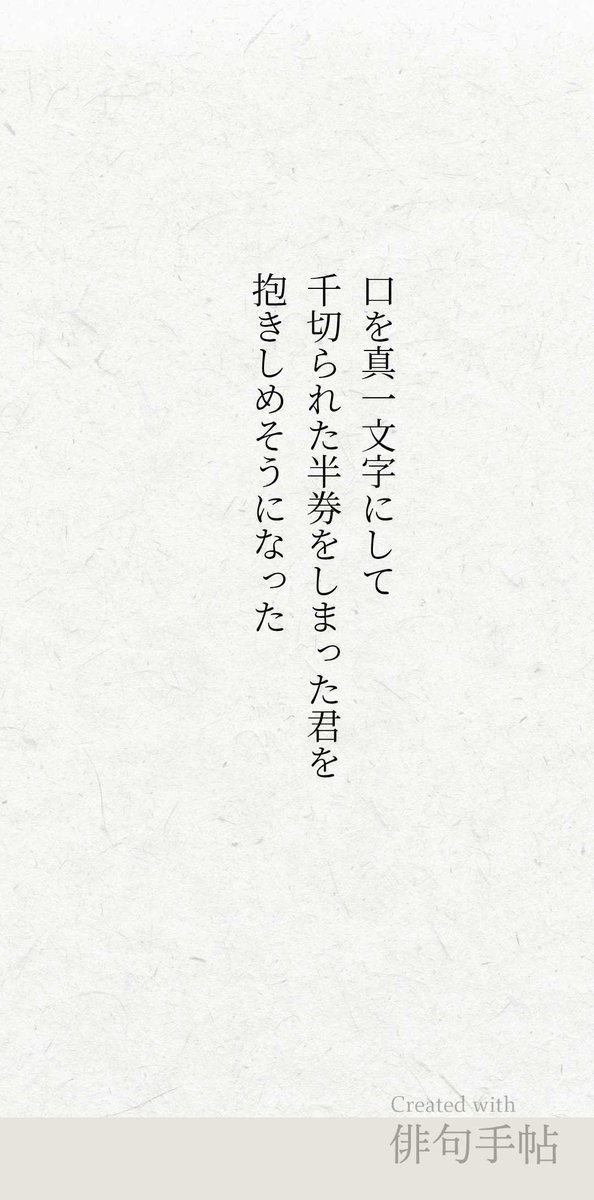 口を真一文字にして
千切られた半券をしまった君を
抱きしめそうになった
Created with
俳句手帖